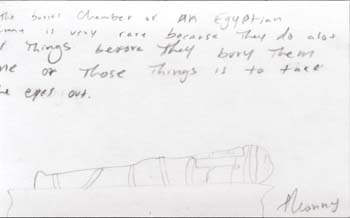 The buriel Chamber of an Egyptian
is very rare because They do alot
of Things before They bury Them
one of Those Things is to take
The eyes out.